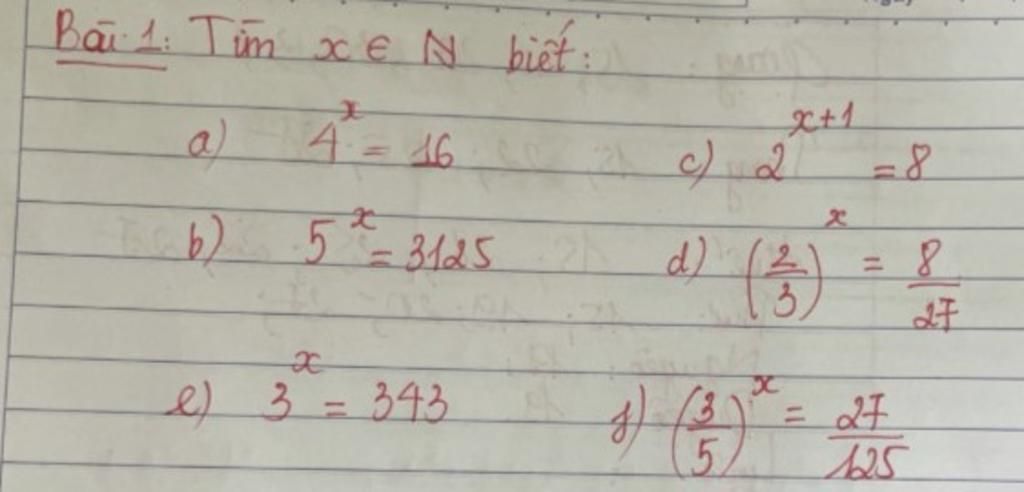 Bài 1: Tìm x ∈ ℕ biết:
a) 4^x = 16
c) 2^{x+1} = 8
b) 5^x = 3125
d) (2/3)^x = 8/27
e) 3^x = 343
f) (3/5)^x = 27/125